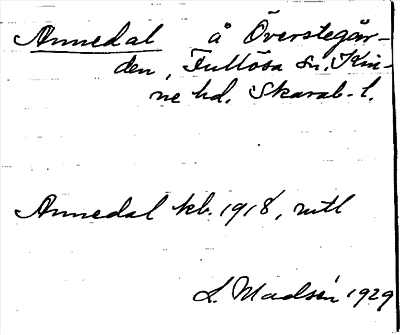 Annedal å Överstegår-
den, Fullösa sn. Kin-
ne hd. Skarab. l.
Annedal kb. 1918, mtl
L. Madsén 1929